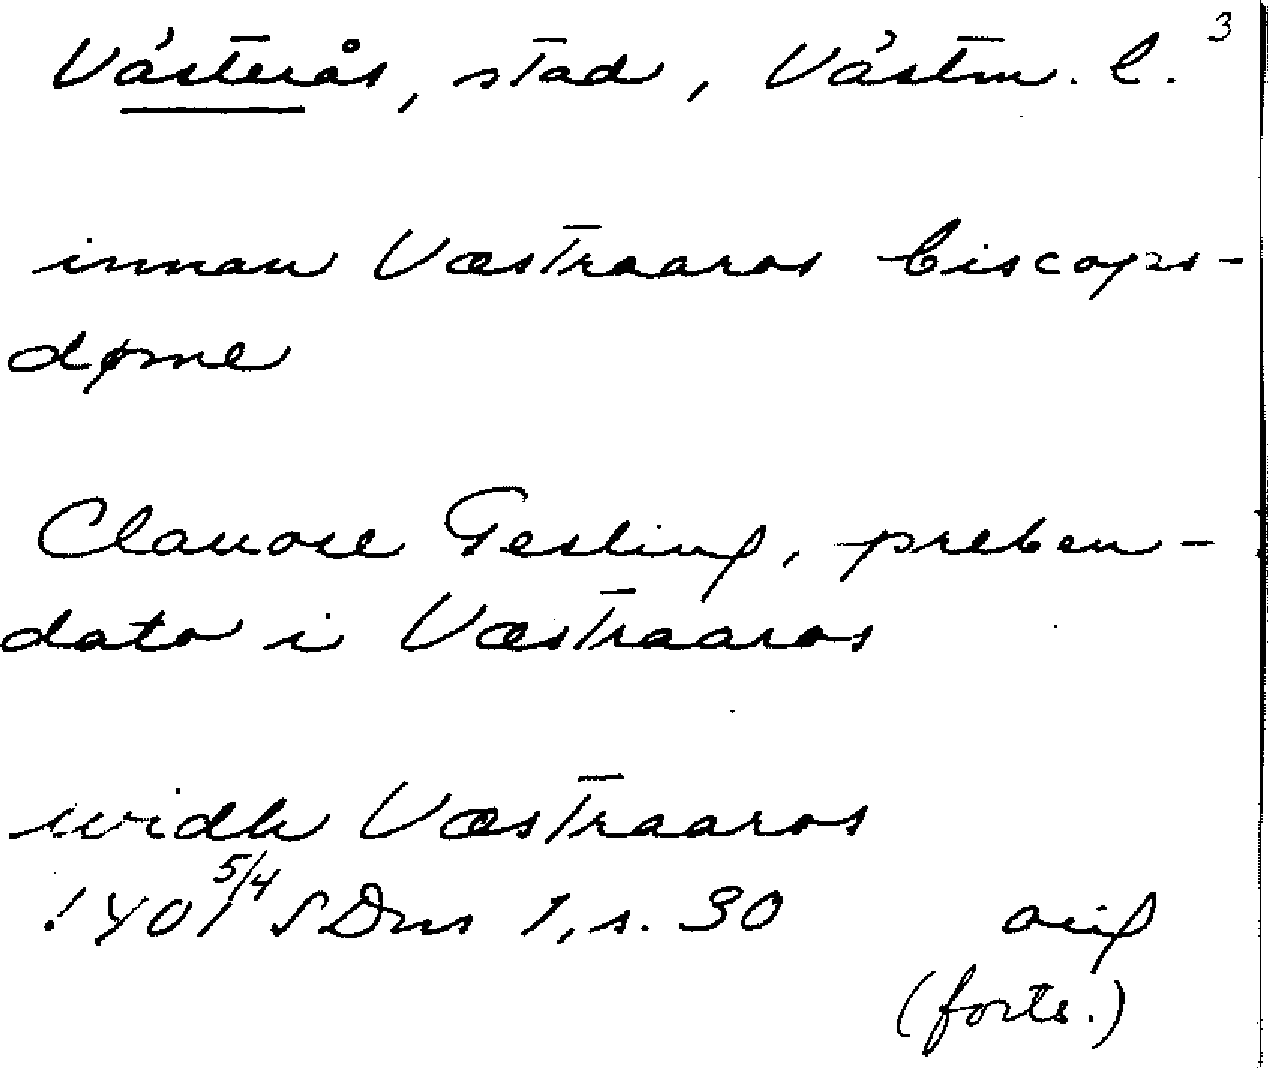 3
Västerås, stad, Västm. l.
innan Væstraaros biscops-
døme
Clauose Gesling, preben-
dato i Væstraaros
widh Væstraaros
1401 5/4 SDns 1, s. 30 orig
(forts.)